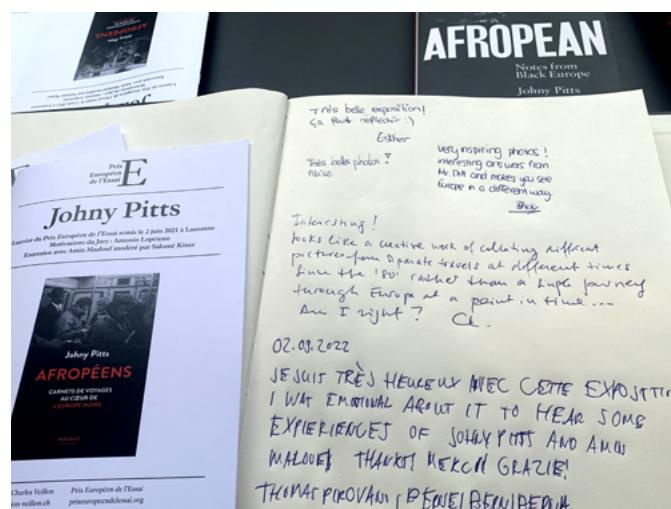 AFROPÉENS
Johny Pitts
AFROPEAN
Notes from
Black Europe
Johny Pitts
Prix
Européen
de l'Essai
E
Johny Pitts
Lauréat du Prix Européen de l'Essai remis le 2 juin 2021 à Lausanne
Motivations du Jury : Antonio Loprieno
Entretien avec Amin Maalouf modéré par Salomé Kiner
Johny Pitts
AFROPÉENS
CARNETS DE VOYAGES
AU CŒUR DE
L'EUROPE NOIRE
MASSOT
Charles Veillon
Prix Européen de l'Essai
on-veillon.ch
prixeuropeendelessai.org
Très belle exposition!
ça fait réfléchir :)
Esther
Très belles photos!
very inspiring photos!
interesting answers from
Mr. Pitts and makes you see
Europe in a different way.
Interesting!
looks like a creative work of collating different
pictures from disparate travels at different times
since the '80' rather than a single journey
through Europe at a point in time...
Am I right?
02.09.2022
JE SUIS TRÈS HEUREUX AVEC CETTE EXPOSITIO
I WAS EMOTIONAL ABOUT IT TO HEAR SOME
EXPIERIENCES OF JOHNY PITTS AND AMIN
MALOUEF THANKS! MERCI! GRAZIE!
THOMAS PIROVANI, BERNE/BERN/BERNA